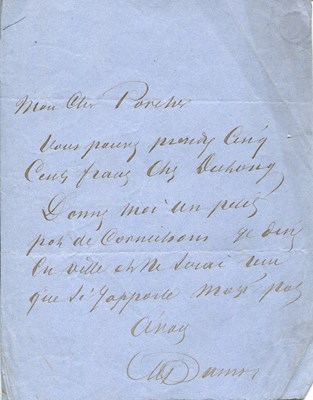 Mon Cher Porcher
Vous pouvez prendre Cinq
Cents francs Chez
Donnez moi un petit
pot de Cornichons je dine
En ville et ne serai
que si j'apporte mon pot
A vous
Al Dumas